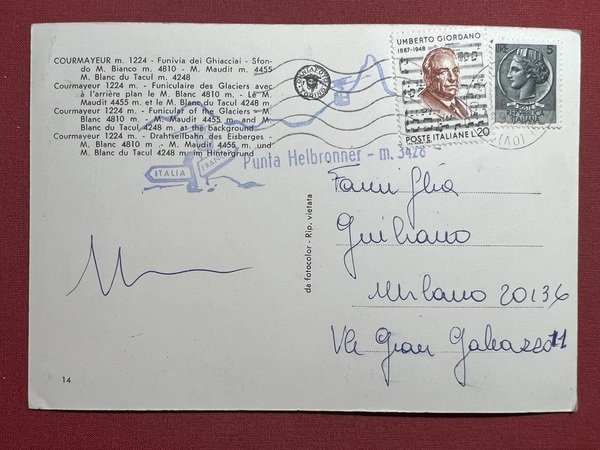 COURMAYEUR m. 1224 - Funivia dei Ghiacciai - Sfon-
do M. Bianco m. 4810 - M. Maudit m. 4455
M. Blanc du Tacul m. 4248
Courmayeur 1224 m. - Funiculaire des Glaciers avec
à l'arrière plan le M. Blanc 4810 m. - Le M.
Maudit 4455 m. et le M. Blanc du Tacul 4248 m.
Courmayeur 1224 m. - Funicular of the Glaciers - M.
Blanc 4810 m. - M. Maudit 4455 m. and M.
Blanc du Tacul 4248 m. as the background
Courmayeur 1224 m. - Drahtseilbahn des Eisberges -
M. Blanc 4810 m .- M. Maudit 4455 m. und
M. Blanc du Tacul 4248 m. im Hintergrund
ITALIA
Punta Helbronner - m. 3428
UMBERTO GIORDANO
1867-1948
POSTE ITALIANE L.20
5
REPVBBLICA
ITALIANA
(AO)
da fotocolor - Rip. vietata
Famiglia
Giuliano
Milano 20136
Vle Gian Galeazzo 11
14